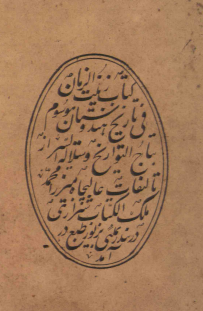 کتاب زینت الزمان
فی تاریخ هندوستان موسوم
بتاج التواریخ وسلالة السیر از
تالیفات عالیجاه میرزا محمد
ملک الکتاب شیرازی
در بندر بمبئی بزیور طبع در
آمد